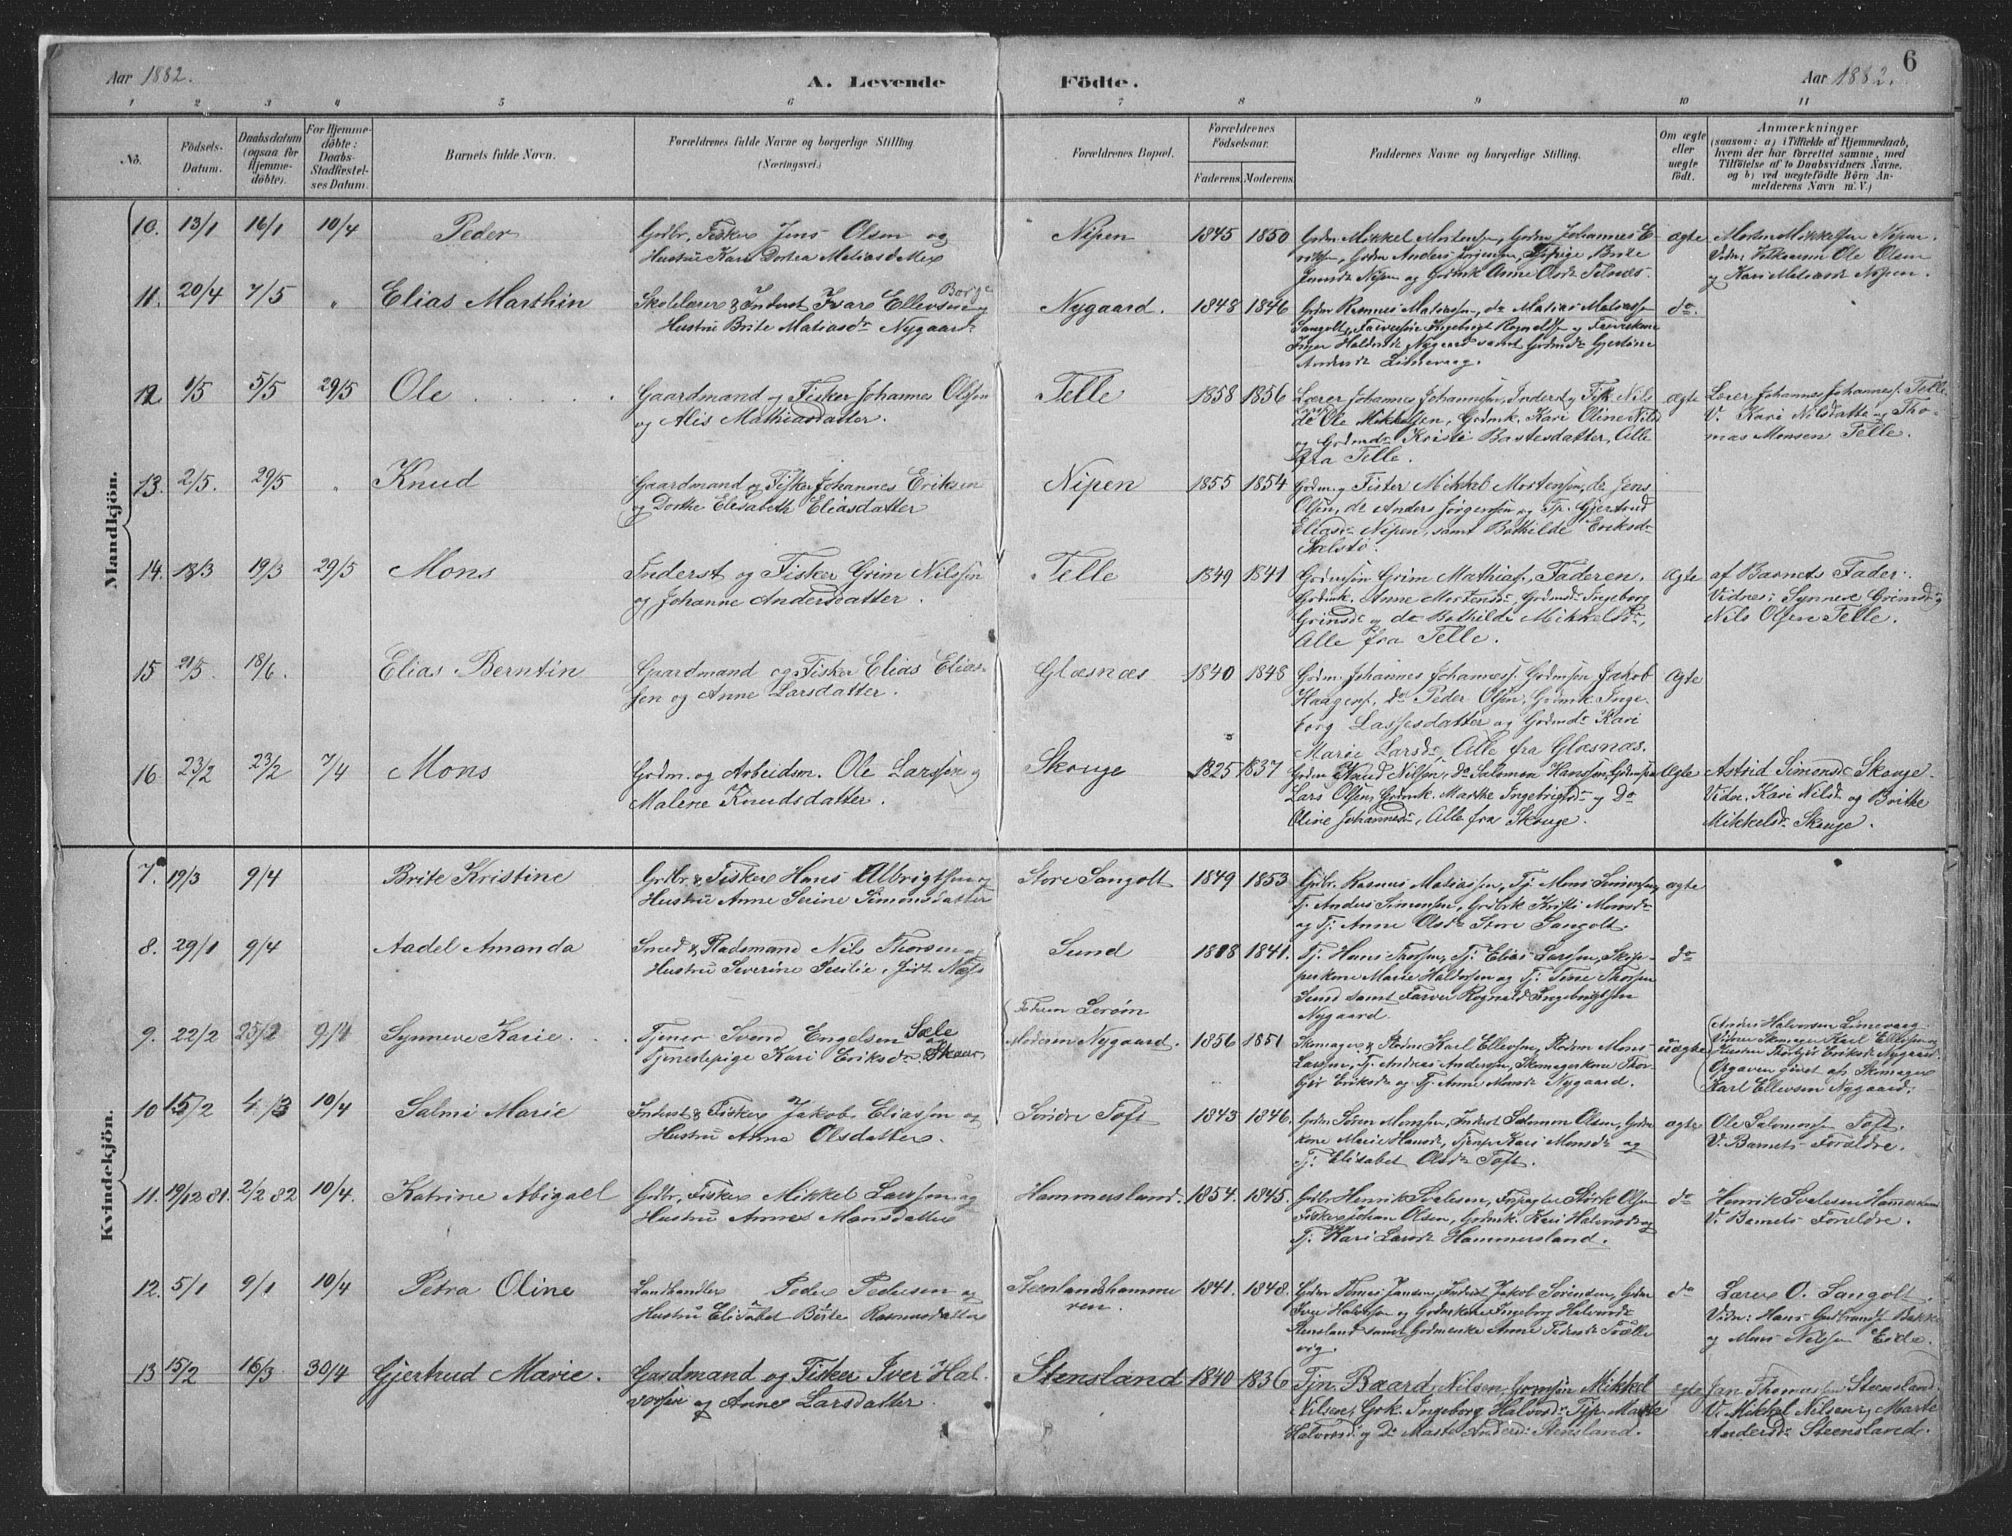 6
Aar 1882.
A. Levende Födte.
Aar 1882.
1 2 3 4 5 6 7 8 9 10 11
No.
Födsels-
Datum.
Daabsdatum
(ogsaa for
Hjemme-
döbte).
For Hjemme-
döbte:
Daabs-
Stadfæstel-
ses Datum.
Barnets fulde Navn.
Forældrenes fulde Navne og borgerlige Stilling
(Næringsvei.)
Forældrenes Bopæl.
Forældrenes
Födselsaar.
Faderens. Moderens.
Faddernes Navne og borgerlige Stilling.
Om ægte
eller
uægte
födt.
Anmærkninger
(saasom: a) i Tilfælde af Hjemmedaab,
hvem der har forrettet samme, med
Tilföielse af to Daabsvidners Navne.
og b) ved uægtefödte Börn An-
melderens Navn m. V.)
Mandkjön.
10. 13/1 16/1 10/4 Peder
Grdbr, Fisker Jens Olsen og
Hustru Kari Dortea Matiasd
Nipen 1845 1850
Grdm Mikkel Mortensen, Grdm Johannes E-
riksen, Grdm Anders Jørgensen, Pige Brite
Jensd Nipen og Grdmk Anne Olsd
ægte
Morten Mikkelsen Nipen.
Vidn: Ole Olsen
og Kari Matiasd Nipen.
11. 20/4 7/5 " Elias Marthin
Skolelærer & Inderst Ivar Ellevsen Borge og
Hustru Brite Matiasdr Nygaard
Nygaard. 1848 1846
Grdm Rasmus Matiassen, do Matias Matiassen
Sangolt, Ingebrigt Rognaldsen og
Inger Haldorsdr Nygaard samt Grdmdr Gjertine
Andersdr Limevaag.
do.
12 1/5 5/5 29/5 Ole
Gaardmand og Fisker Johannes Olsson
og Alis Mathiasdatter.
Telle 1858 1856
Lærer Johannes Johannessen, Inderst og Fisk. Nils
de Ole Mikkelsen, Grdmk. Kari Oline Nilsd
og Grdmdr Kristi Bastesdatter, Alle
fra Telle.
ægte
Lærer Johannes Johanness. Telle.
V. Kari Nilsdatter og Tho-
mas Monsen Telle.
13. 2/5. 29/5 " Knud
Gaardmand og Fisker Johannes Eriksen
og Dorthe Elisabeth Eliasdatter
Nipen 1855 1854
Grdm. og Fisker Mikkel Mortensen, do Jens
Olsen, do Anders Jørgensen og Tp. Gjertrud
Eliasdr Nipen, samt Bothilde Eriksdr
Sælstø.
14. 18/3 19/3 29/5 Mons
Inderst og Fisker Grim Nilssøn
og Johanne Andersdatter.
Telle 1849 1841
Grdmsøn Grim Mathiass, Faderen,
Grdmk. Anne Mortensdr, Grdmdr Ingeborg
Grimsdr og do Bothilde Mikkelsdr,
Alle fra Telle.
Ægte
af Barnets Fader.
Vidner: Synneve Grimsdr og
Nils Olsen Telle.
15 21/5. 18/6. Elias Berntin
Gaardmand og Fisker Elias Elias-
sen og Anne Larsdatter.
Glæsnæs 1840 1848
Grdm. Johannes Johanness. Grdmsøn Jakob
Haagens, do Peder Olsen, Grdmk. Inge-
borg Lassesdatter og Grdmdr Kari
Marie Larsdr, Alle fra Glæsnæs.
Ægte
16 23/2 23/2 7/4 Mons
Grdm. og Arbeidsm. Ole Larssøn og
Malene Knudsdatter.
Skouge 1825 1837
Grdm Knud Nilsøn, do Salomon Hanssøn, Grdmsøn
Lars Olsen, Grdmk. Marthe Ingebrigtsdr og do
Oline Johannesdr, Alle fra Skouge.
Ægte
Astrid Simonsdr Skouge.
Vidn. Kari Nilsdr og Brithe
Mikkelsdr Skouge.
Kvindekjön.
7. 19/3 9/4 Brite Kristine
Grdbr & Fisker Hans Albrigtsen og
Hustru Anne Serine Simonsdatter
Store Sangolt 1849 1853
Grdbr. Rasmus Matiassen, Tj. Mons Simonsen,
Tj. Anders Simonsen, Grdbrk Kristi Monsdr
og Tj. Anne Olsdr Store Sangolt.
ægte
8. 29/1 9/4 Aadel Amanda
Smed & Pladsmand Nils Thorsen og
Hustru Severine Sesilie, født Næss
Sund 1848 1841.
Tj. Hans Thorsen, Tj. Elias Larssen, Skip-
perkone Marie Haldorsen og Tj. Tine Thorsen
Sund samt Farver Rognald Ingebrigtsen
Nygaard.
do
9. 22/2 25/2 9/4 Synneve Karie.
Tjener Svend Engelsen Sæle
Tjenestepige Kari Eriksdr Skaar
Faderen Lerøen
Moderen Nygaard. 1856 1851
Skomager & Karl Ellevsen, Mons
Larssen, Tj. Andreas Andersen, Skomagerkone Thor-
bjør Eriksdr og Tj. Anne Monsdr Nygaard.
uægte
Anders Halvorsen Limevaag
Vidner Skomager Karl Ellevsen og
Hustru Thorbjør Eriksdr Nygaard.
Opgaven gjort af Skomager
Karl Ellevsen Nygaard.
10 15/2 4/3 10/4 Salmi Marie
Inderst & Fisker Jakob Eliassen og
Hustru Anna Olsdatter.
Søndre Toft 1843 1846.
Grdm Søren Monssen, Inderst Salomon Olsen, Grdm-
kone Marie Hansdr, Tjenp. Kari Monsdr og
Tj. Elisabet Olsdr Toft.
ægte
Ole Salomonsen Toft.
V. Barnets Forældre.
11. 19/12 81. 2/2 82 10/4. Katrine Abigael
Grdbr, Fisker Mikkel Larssen og
Hustru Anne Monsdatter
Hammersland. 1854. 1845.
Grdbr Henrik Salvesen, Størk Olsen
Fisker Johan Olsen, Grdmk. Kari Halvorsdr og
Tj. Kari Larsdr Hammersland.
do
Henrik Salvesen Hammersland
V. Barnets Forældre.
12. 5/1 9/1 10/4 Petra Oline
Landhandler Peder Pedersen og
Hustru Elisabet Birte Rasmusdatter
Steenslandshamme
ren. 1841. 1848.
Grdm Tomas Jansen, Inderst Jakob Sørensen, Grdm
Iver Halvorsen og Grdmkone Ingeborg Halvorsdr
Stensland samt Grdmenke Anne Pedersdr Trælle-
vig.
do
Lærer O. Sangolt.
Vidn: Hans Gudbrands Bakke
og Mons Nilssen Eide.
13 15/2 16/3 30/4 Gjertrud Marie.
Gardmand og Fisker Iver Hal-
vorsen og Anne Larsdatter.
Stensland 1840 1836
Tjn. Baard Nilsen, Grdmsøn Mikkel
Nilsen, Grk. Ingeborg Halvorsdr. Tjp. Marte
Halvorsdr og Do Marte Andersdr Stensland.
ægte
Jan Thomassen Steensland.
V. Mikkel Nilsen og Marte
Andersdr Steensland.